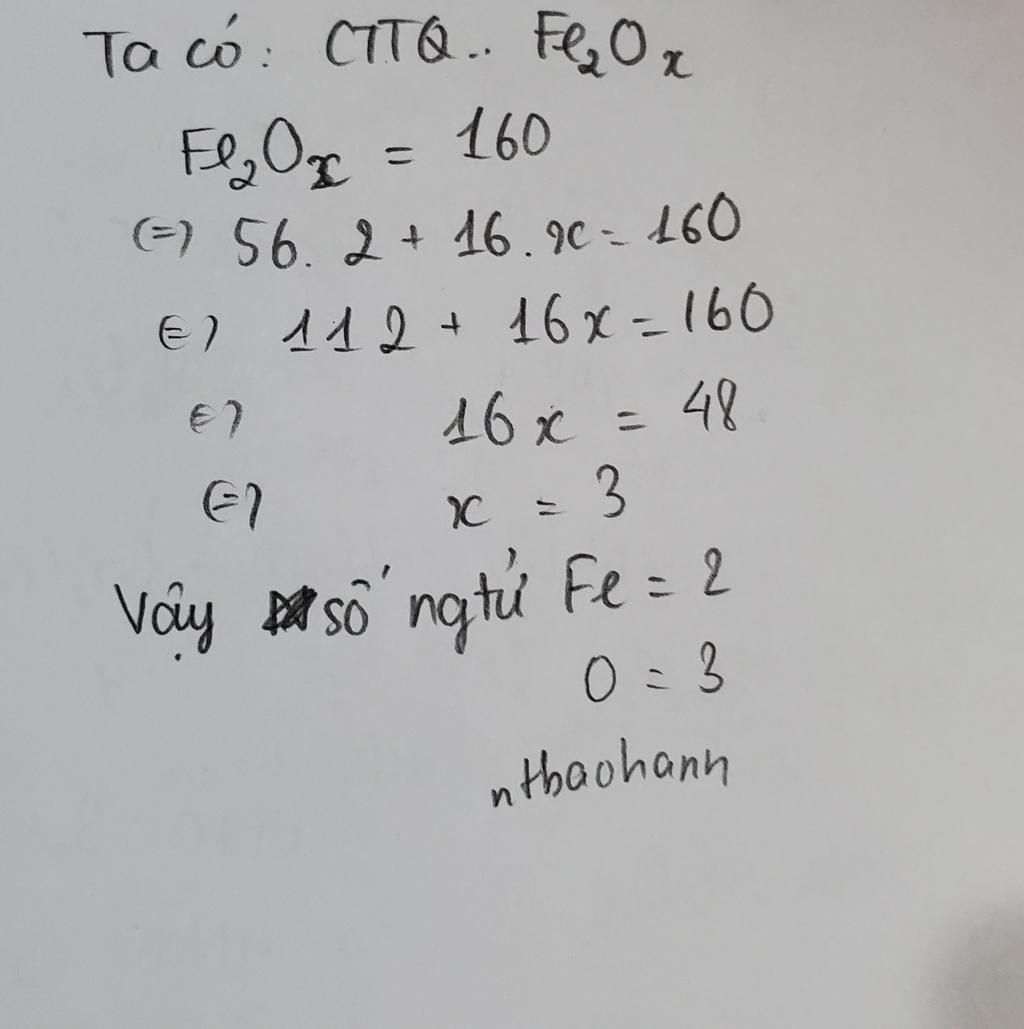 Ta có: CTTQ.. Fe₂Oₓ
Fe₂Oₓ = 160
(=) 56. 2 + 16. x = 160
(=) 112 + 16x = 160
(=) 16x = 48
(=) x = 3
Vậy số ngtử Fe = 2
O = 3
nthaohanh